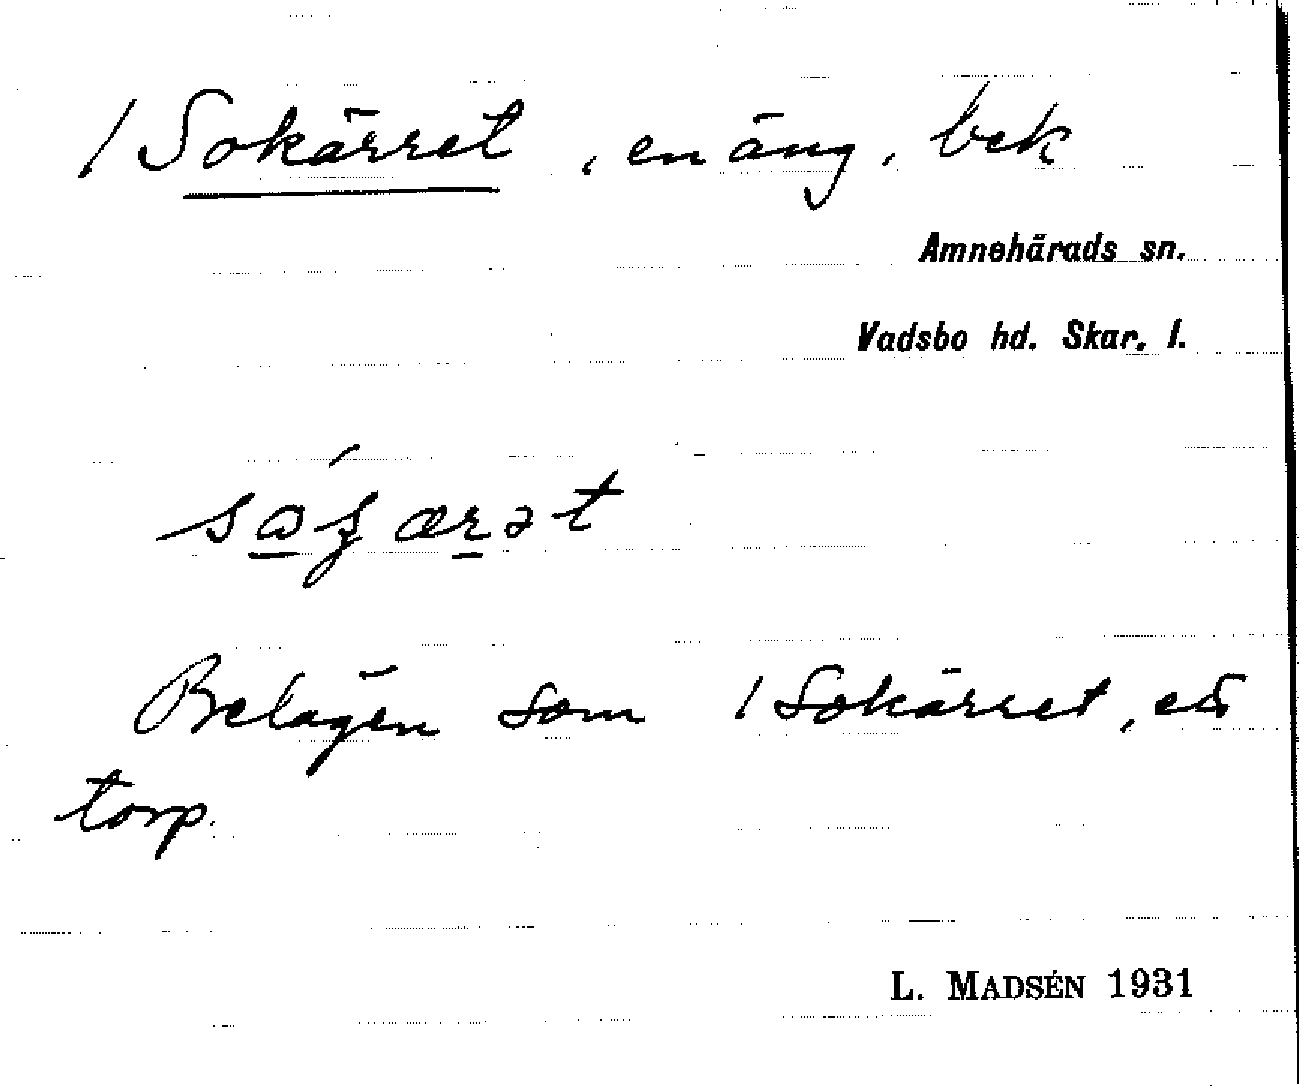 / Sokärret, en äng, bek
Amnehärads sn.
Vadsbo hd. Skar. l.
Belägen som / Sokärret, ett
torp.
L. MADSÉN 1931